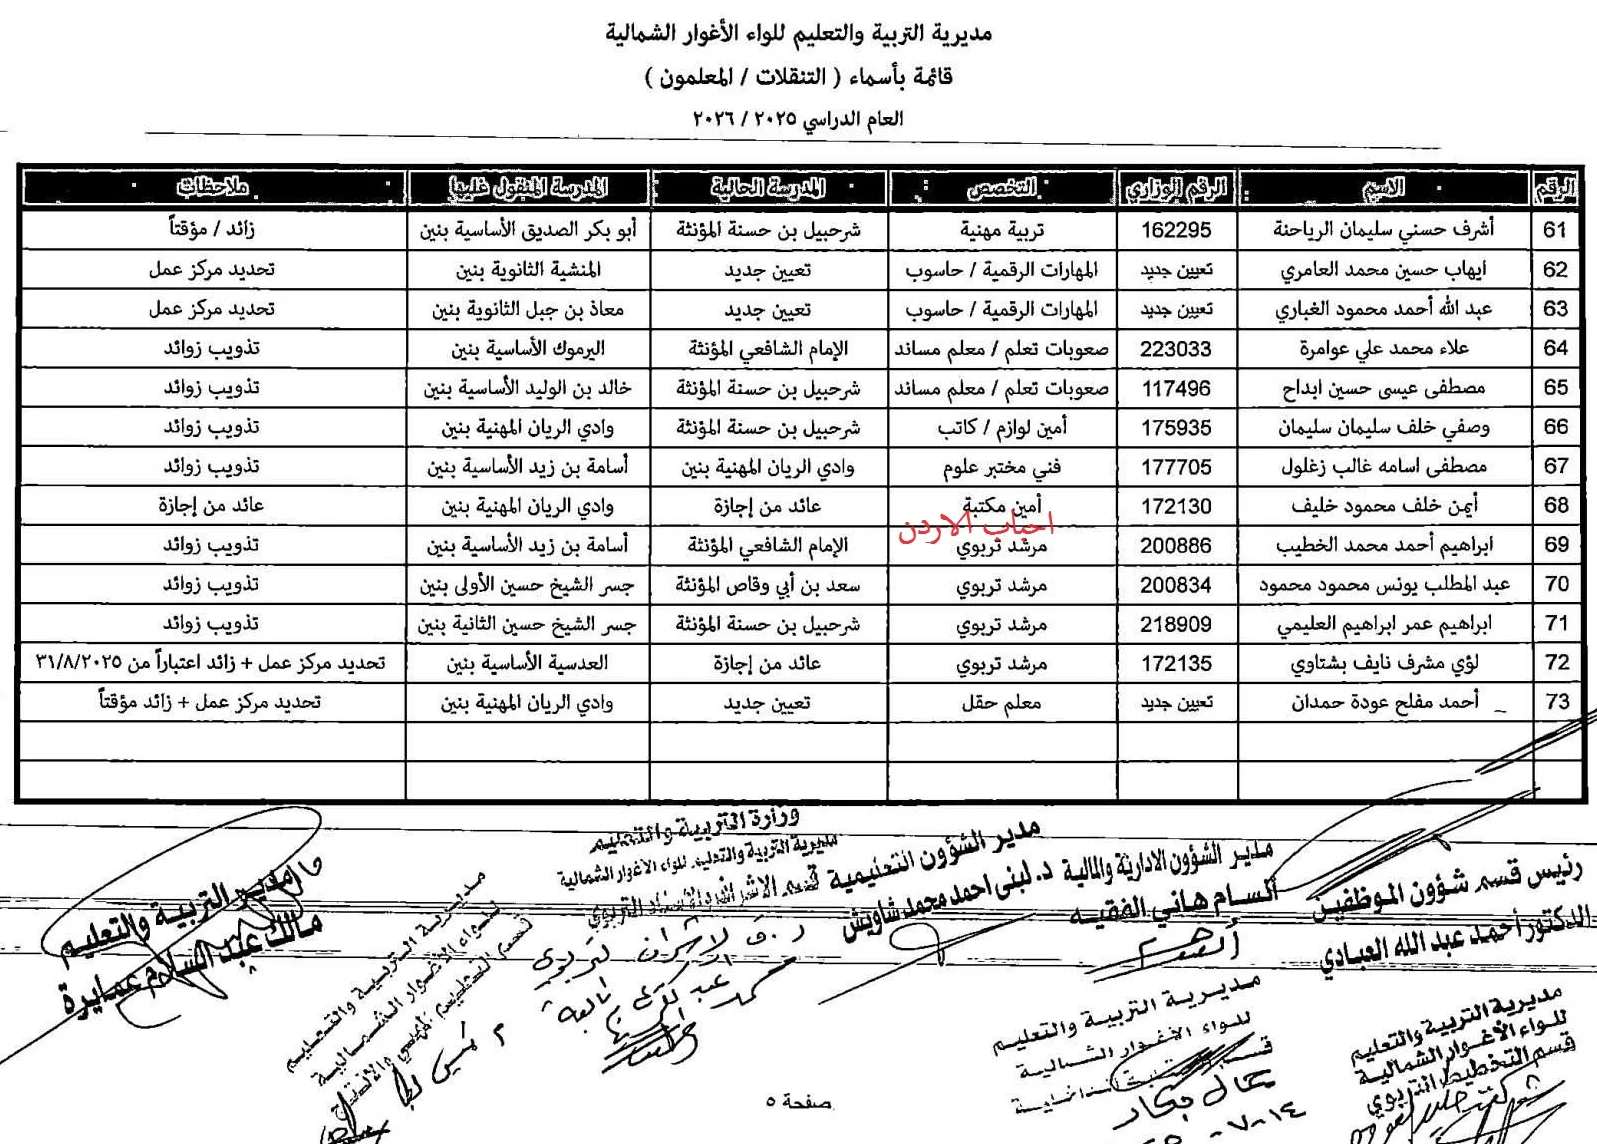 مديرية التربية والتعليم للواء الأغوار الشمالية
قائمة بأسماء ( التنقلات / المعلمون )
العام الدراسي ٢٠٢٥ / ٢٠٢٦
الرقم الاسم الرقم الوزاري التخصص المدرسة الحالية المدرسة المنقول عليها ملاحظات
61 أشرف حسني سليمان الرياحنة 162295 تربية مهنية شرحبيل بن حسنة المؤنثة أبو بكر الصديق الأساسية بنين زائد / مؤقتاً
62 ايهاب حسين محمد العامري تعيين جديد المهارات الرقمية / حاسوب تعيين جديد المنشية الثانوية بنين تحديد مركز عمل
63 عبد الله أحمد محمود الغباري تعيين جديد المهارات الرقمية / حاسوب تعيين جديد معاذ بن جبل الثانوية بنين تحديد مركز عمل
64 علاء محمد علي عوامرة 223033 صعوبات تعلم / معلم مساند الإمام الشافعي المؤنثة اليرموك الأساسية بنين تذويب زوائد
65 مصطفى عيسى حسين ابداح 117496 صعوبات تعلم / معلم مساند شرحبيل بن حسنة المؤنثة خالد بن الوليد الأساسية بنين تذويب زوائد
66 وصفي خلف سليمان سليمان 175935 أمين لوازم / كاتب شرحبيل بن حسنة المؤنثة وادي الريان المهنية بنين تذويب زوائد
67 مصطفى اسامه غالب زغلول 177705 فني مختبر علوم وادي الريان المهنية بنين أسامة بن زيد الأساسية بنين تذويب زوائد
68 أيمن خلف محمود خليف 172130 أمين مكتبة عائد من إجازة وادي الريان المهنية بنين عائد من إجازة
احباب الاردن
69 ابراهيم أحمد محمد الخطيب 200886 مرشد تربوي الإمام الشافعي المؤنثة أسامة بن زيد الأساسية بنين تذويب زوائد
70 عبد المطلب يونس محمود محمود 200834 مرشد تربوي سعد بن أبي وقاص المؤنثة جسر الشيخ حسين الأولى بنين تذويب زوائد
71 ابراهيم عمر ابراهيم العليمي 218909 مرشد تربوي شرحبيل بن حسنة المؤنثة جسر الشيخ حسين الثانية بنين تذويب زوائد
72 لؤي مشرف نايف بشتاوي 172135 مرشد تربوي عائد من إجازة العدسية الأساسية بنين تحديد مركز عمل + زائد اعتباراً من ٣١/٨/٢٠٢٥
73 أحمد مفلح عودة حمدان تعيين جديد معلم حقل تعيين جديد وادي الريان المهنية بنين تحديد مركز عمل + زائد مؤقتاً
رئيس قسم شؤون الموظفين
الدكتور أحمد عبد الله العبادي
مدير الشؤون الادارية والمالية
ابسام هاني الفقيه
مدير الشؤون التعليمية
د. لبنى احمد محمد شاويش
وزارة التربية والتعليم
مديرية التربية والتعليم للواء الاغوار الشمالية
قسم الاشراف والاسناد التربوي
مدير التربية والتعليم
مالك عبد السلام عمايرة
مديرية التربية والتعليم
للواء الاغوار الشمالية
مديرية التربية والتعليم
للواء الاغوار الشمالية
مديرية التربية والتعليم
للواء الاغوار الشمالية
قسم التخطيط التربوي
صفحة ٥